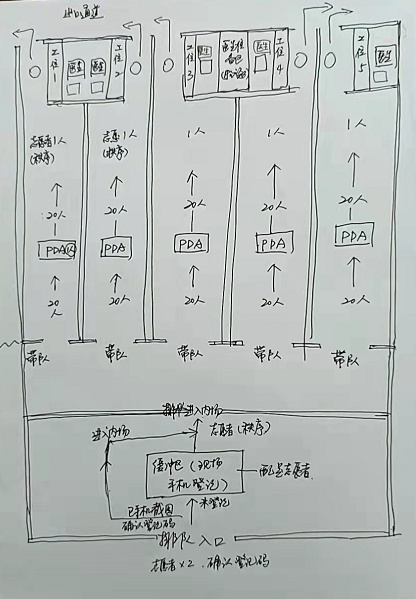 出口通道
工位1
医生
医生
工位2
工位3
医生
医生
工位4
工位5
医生
志愿者1人
(秩序)
志愿1人
(秩序)
1人
1人
1人
20人
20人
20人
20人
20人
PDA
PDA
PDA
PDA
PDA
20人
20人
20人
20人
20人
带队
带队
带队
带队
带队
排队进入内场
进入内场
志愿者(秩序)
缓冲区(现场
手机登记)
配点志愿者
已手机截图
确认登记码
未登记
排队入口
志愿者×2、确认登记码